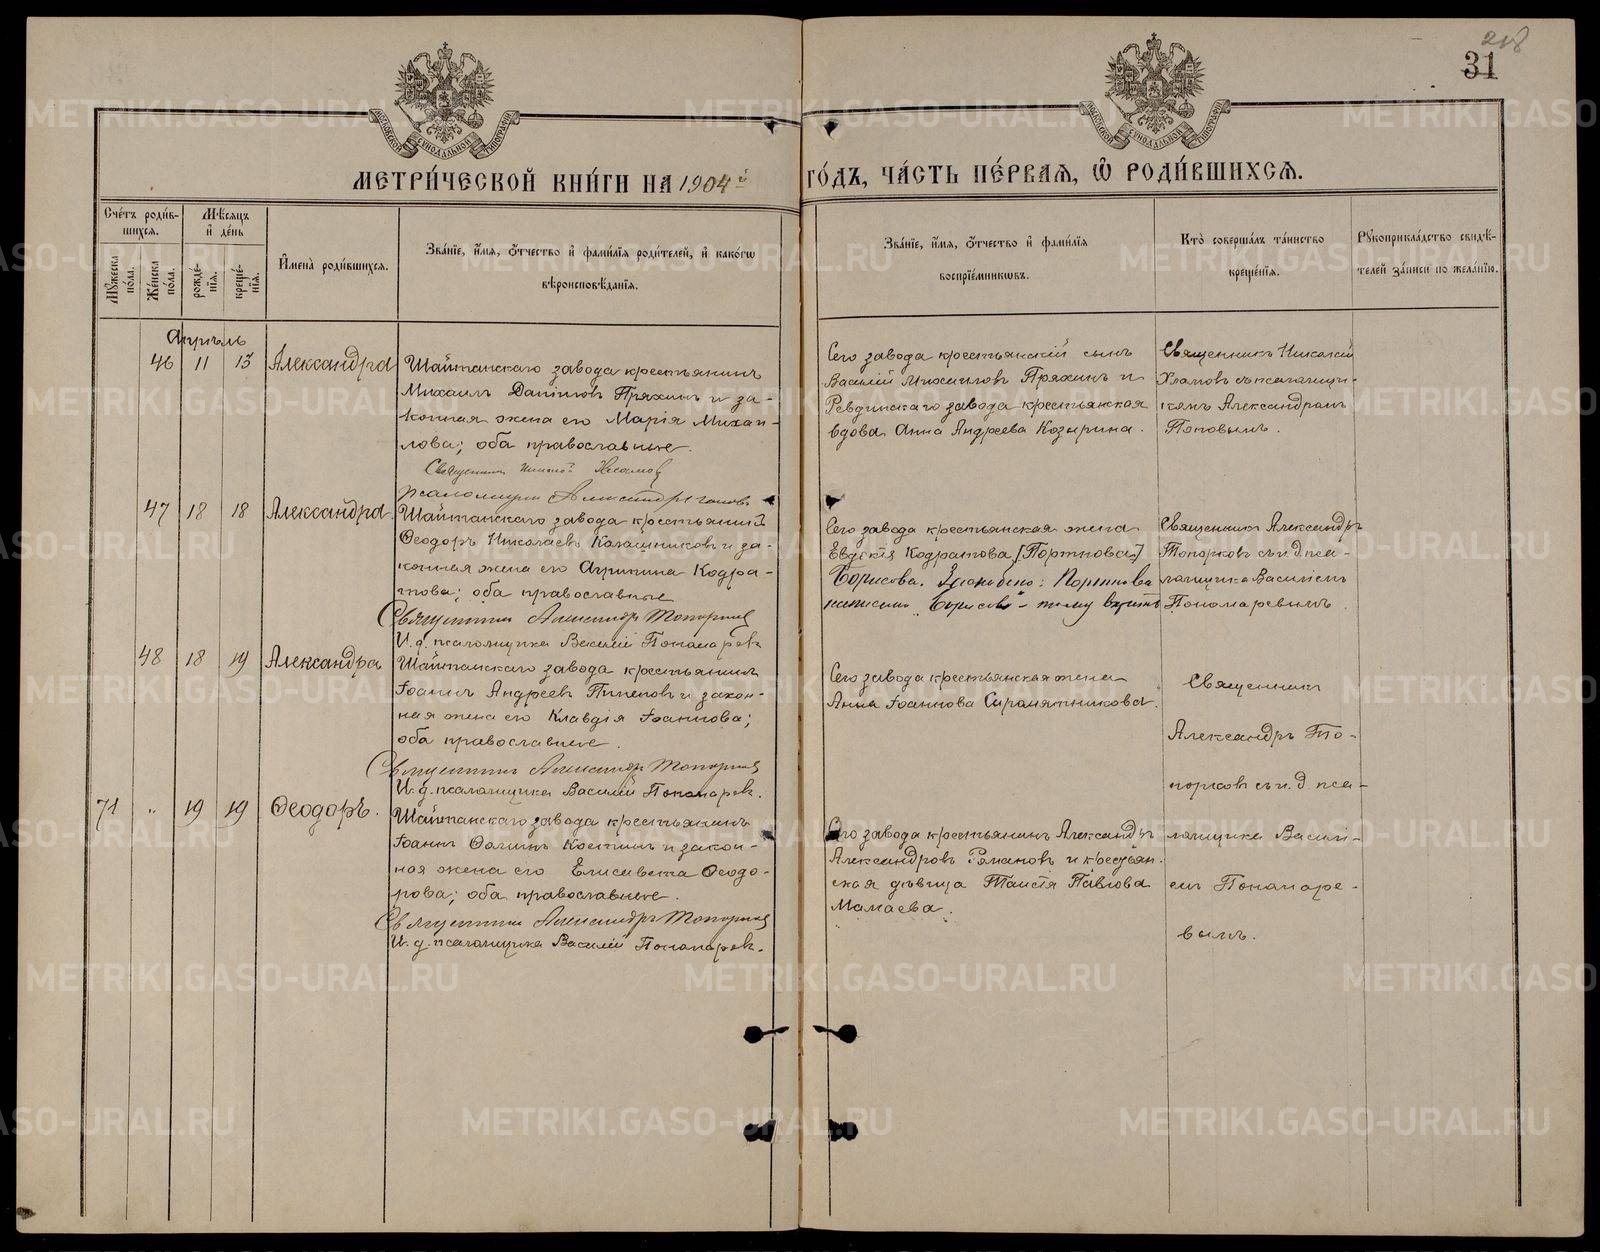 218
31
МОСКОВСКОЙ СѴНОДАЛЬНОЙ ТИПОГРАФІИ
МОСКОВСКОЙ СѴНОДАЛЬНОЙ ТИПОГРАФІИ
МЕТРИ́ЧЕСКОЙ КНИ́ГИ НА 1904й ГО́ДЪ, ЧА́СТЬ ПЕ́РВАЯ, Ѡ҆ РОДИ́ВШИХСЯ.
Сче́тъ роди́в-
шихся.
Мꙋ́жеска по́ла.
Же́нска по́ла.
Мѣ́сяцъ
и҆ де́нь
рожде́-
нїя.
креще́-
нїя.
И҆мена̀ роди́вшихся.
Зва́нїе, и҆́мя, ѻ҆́тчество и҆ фами́лїя роди́телей, и҆ како́гѡ
вѣроисповѣ́данїя.
Зва́нїе, и҆́мя, ѻ҆́тчество и҆ фами́лїя
воспрїе́мникѡвъ.
Кто̀ соверша́лъ та́инство
креще́нїя.
Рꙋкоприкла́дство свидѣ́-
телей за́писи по жела́нїю.
Апрѣль
46 11 13 Александра
Шайтанскаго завода крестьянинъ
Михаилъ Данiиловъ Пряхинъ и за-
конная жена его Марія Михаи-
лова; оба православные.
Священникъ Николай Хламовъ
Псаломщикъ Александръ Поповъ
Сего завода крестьянскій сынъ
Василій Михаиловъ Пряхинъ и
Ревдинскаго завода крестьянская
вдова Анна Андреева Козырина.
Священникъ Николай
Хламовъ съ псаломщи-
комъ Александромъ
Поповымъ.
47 18 18 Александра
Шайтанскаго завода крестьянинъ
Ѳеодоръ Николаевъ Калашниковъ и за-
конная жена его Агрипина Кодра-
това; оба православные
Священникъ Александръ Топорковъ
И. д. псаломщика Василій Пономаревъ
Сего завода крестьянская жена
Евдокія Кодратова [Портнова]
Борисова. Портнова
написано „Борисова“ - тому вѣрить
Священникъ Александръ
Топорковъ съ и. д. пса-
ломщика Василіемъ
Пономаревымъ.
48 18 19 Александра
Шайтанскаго завода крестьянинъ
Іоаннъ Андреевъ Пименовъ и закон-
ная жена его Клавдія Іоаннова;
оба православные.
Священникъ Александръ Топорковъ
И. д. псаломщика Василій Пономаревъ.
Сего завода крестьянская жена
Анна Іоаннова Сыромятникова.
Священникъ
Александръ То-
порковъ съ и. д. пса-
ломщика Васили-
емъ Пономаре-
вымъ.
71 „ 19 19 Ѳеодоръ.
Шайтанскаго завода крестьянинъ
Іоаннъ Ѳалинъ Костинъ и закон-
ная жена его Елисавета Ѳеодо-
рова; оба православные.
Священникъ Александръ Топорковъ
И. д. псаломщика Василій Пономаревъ.
Сего завода крестьянинъ Александръ
Александровъ Романовъ и крестьян-
ская дѣвица Таисія Павлова
Мамаева.
METRIKI.GASO-URAL.RU